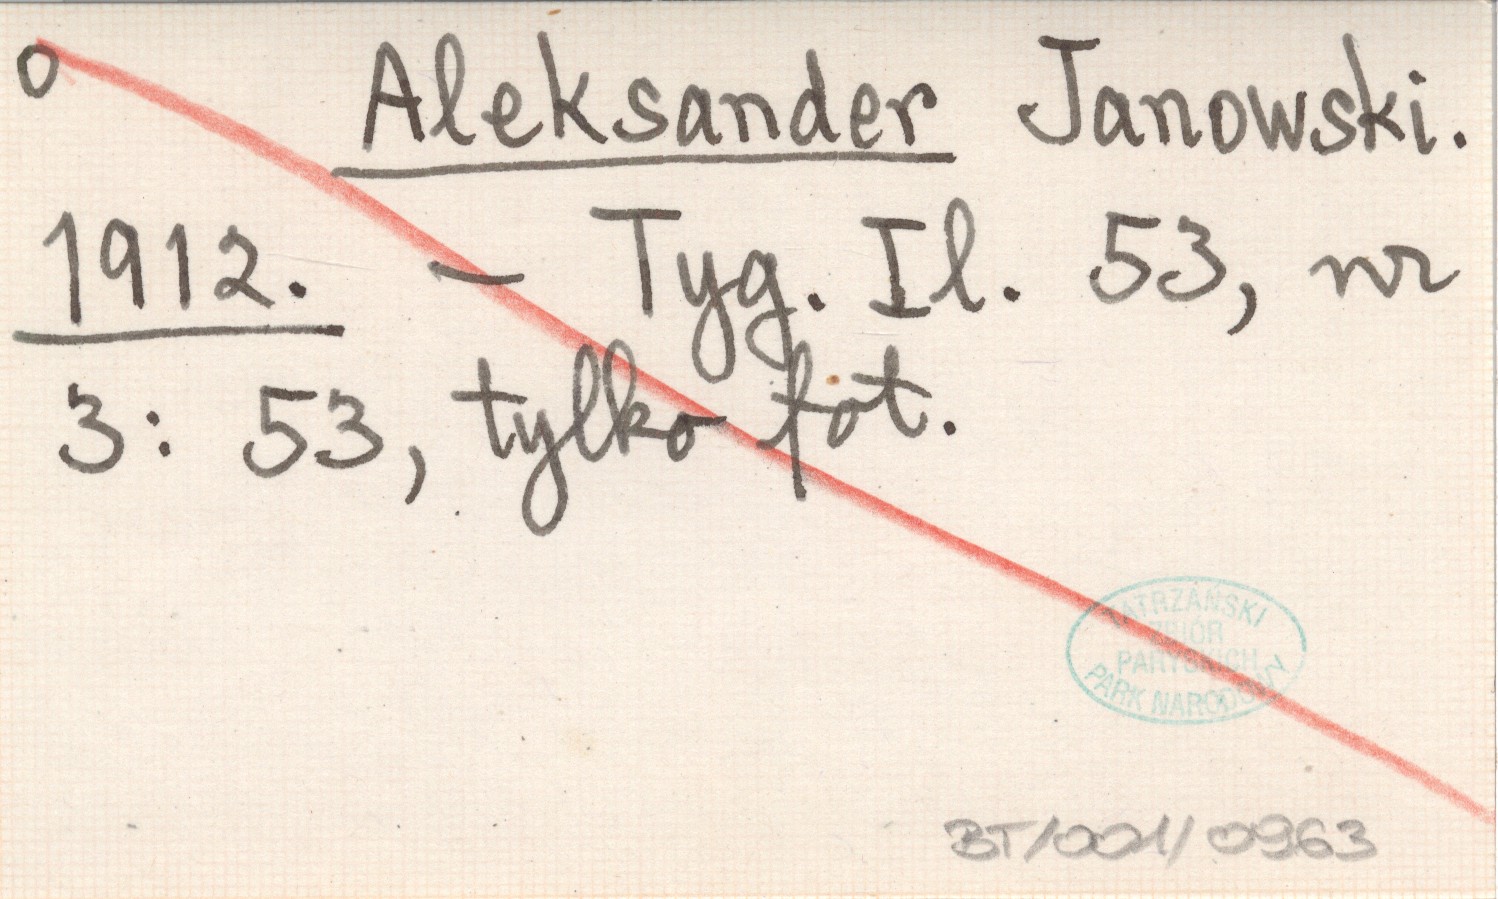 o Aleksander Janowski.
1912. – Tyg. Il. 53, nr
3: 53, tylko fot.
TATRZAŃSKI
ZBIÓR
PARYSKICH
PARK NARODOWY
BT/001/0963